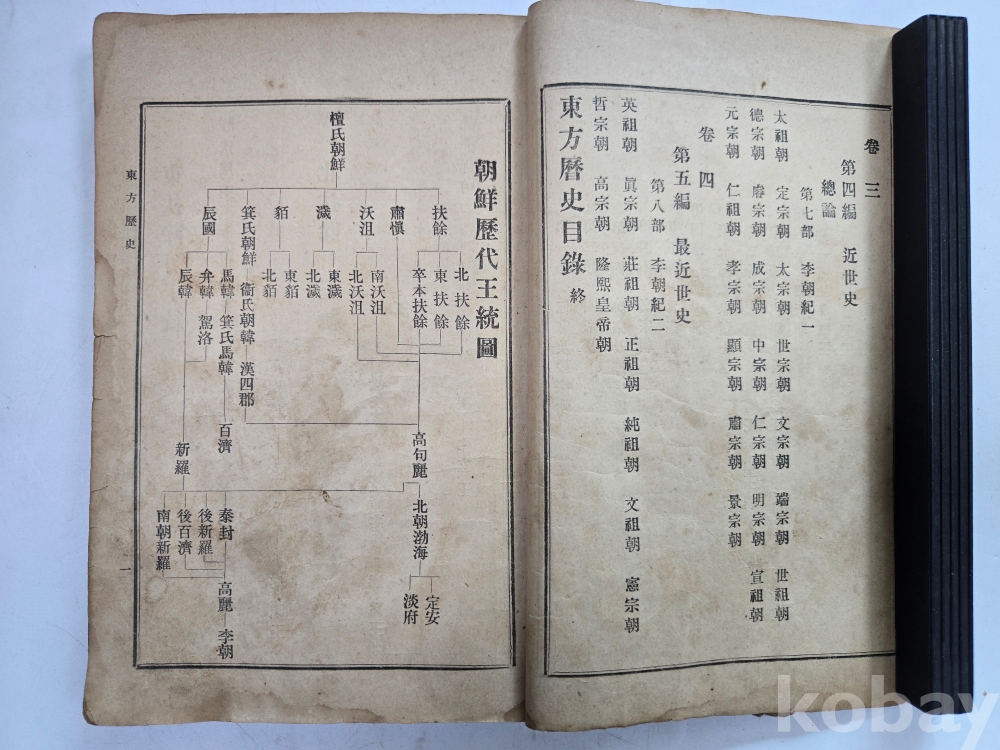 卷三
第四編 近世史
總論
第七部 李朝紀一
太祖朝 定宗朝 太宗朝 世宗朝 文宗朝 端宗朝 世祖朝
德宗朝 睿宗朝 成宗朝 中宗朝 仁宗朝 明宗朝 宣祖朝
元宗朝 仁祖朝 孝宗朝 顯宗朝 肅宗朝 景宗朝
卷四
第五編 最近世史
第八部 李朝紀二
英祖朝 眞宗朝 莊祖朝 正祖朝 純祖朝 文祖朝 憲宗朝
哲宗朝 高宗朝 隆熙皇帝朝
東方曆史目錄 終
朝鮮歷代王統圖
檀氏朝鮮
扶餘
肅愼
沃沮
濊
貊
箕氏朝鮮
辰國
北扶餘
東扶餘
卒本扶餘
南沃沮
北沃沮
東濊
北濊
東貊
北貊
衞氏朝韓
漢四郡
馬韓
箕氏馬韓
弁韓
駕洛
辰韓
百濟
高句麗
新羅
北朝渤海
泰封
後新羅
後百濟
南朝新羅
定安
淡府
高麗
李朝
東方歷史
一
kobay